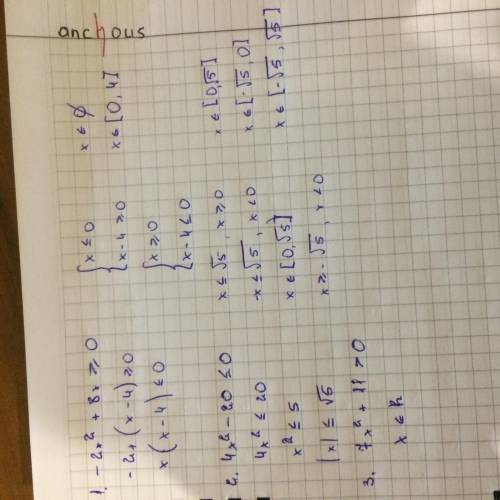 anchous
1. -2x² + 8x ≥ 0
-2x(x-4) ≥ 0
x(x-4) ≤ 0
{ x ≤ 0
x-4 ≥ 0
{ x ≥ 0
x-4 ≤ 0
x ∈ ∅
x ∈ [0, 4]
2. 4x² - 20 ≤ 0
4x² ≤ 20
x² ≤ 5
|x| ≤ √5
x ≤ √5, x ≥ 0
-x ≤ √5, x < 0
x ∈ [0, √5]
x ≥ -√5, x < 0
x ∈ [0, √5]
x ∈ [-√5, 0]
x ∈ [-√5, √5]
3. 7x² + 11 > 0
x ∈ R